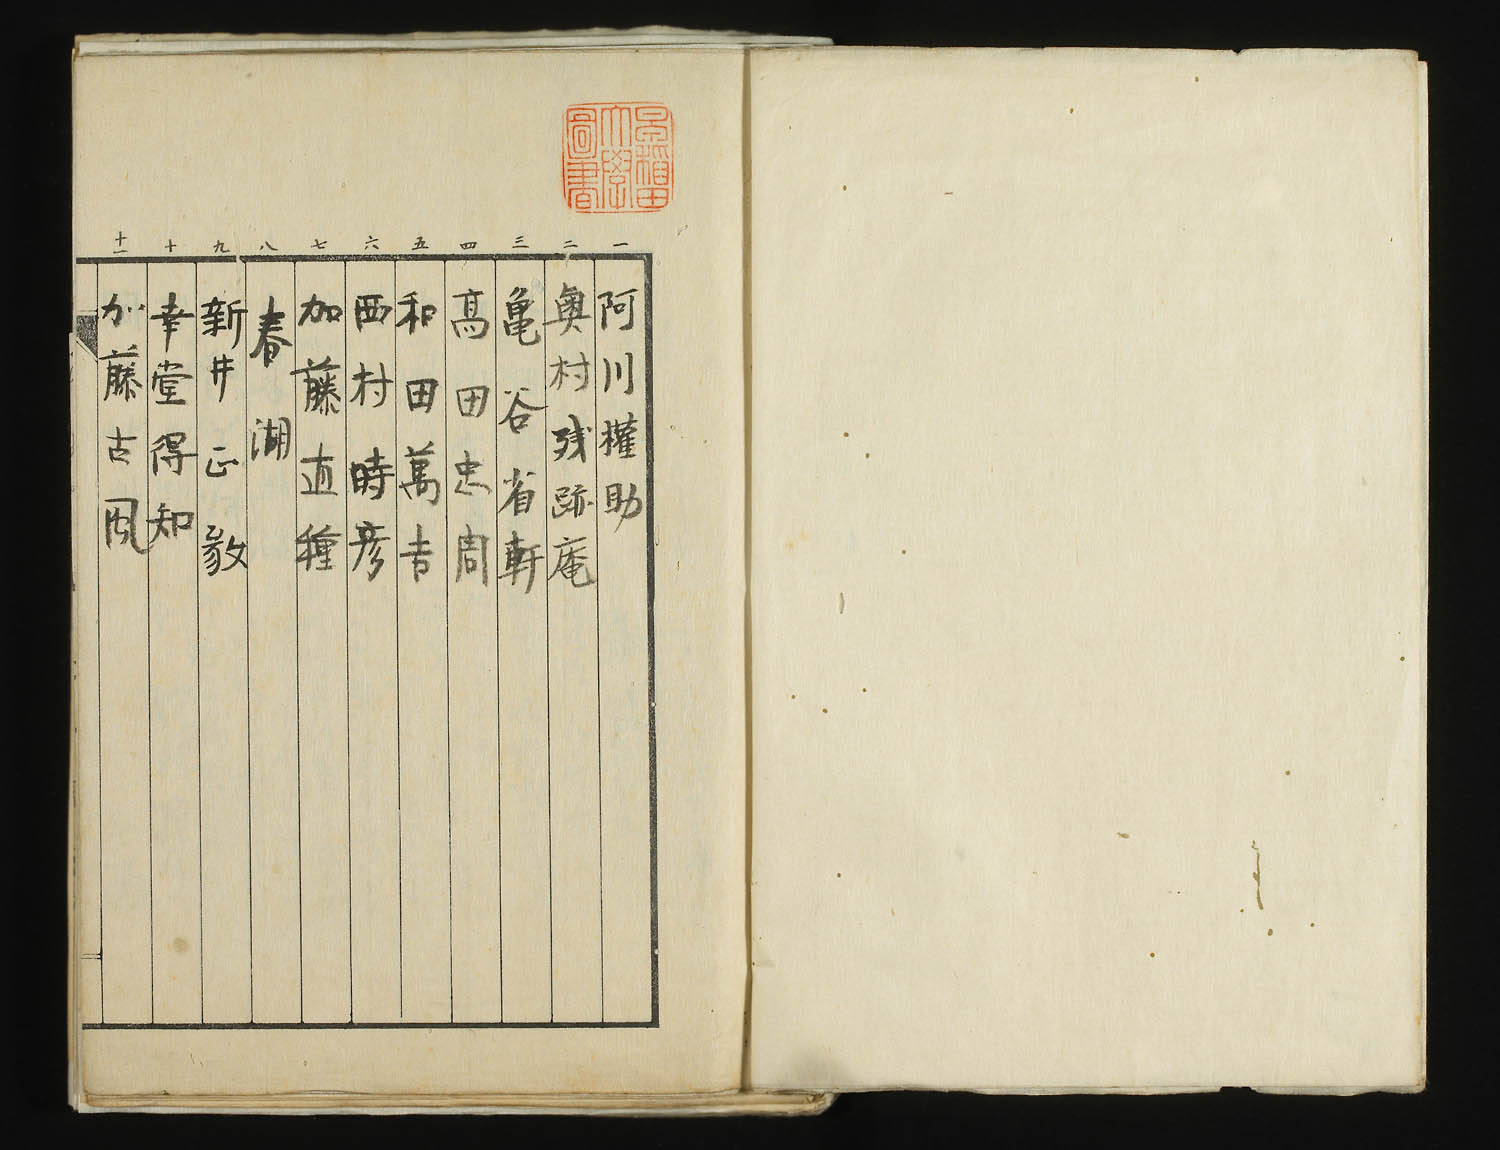 早稲田
大學
圖書
一 二 三 四 五 六 七 八 九 十 十一
阿川權助
奥村残跡庵
亀谷省軒
髙田忠周
和田萬吉
西村時彦
加藤直種
春湖
新井正毅
幸堂得知
加藤古風